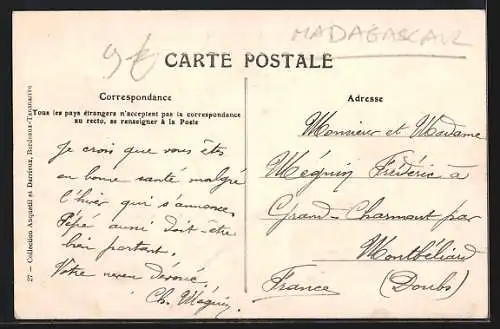 9€
MADAGASCAR
CARTE POSTALE
Correspondance
Tous les pays étrangers n'acceptent pas la correspondance
au recto, se renseigner à la Poste
Je crois que vous êtes
en bonne santé malgré
l'hiver qui s'annonce,
Pépé aussi doit-être
bien portant.
Votre neveu dévoué.
Ch. Méguin
Adresse
Monsieur et Madame
Méguin Frédéric à
Grand-Charmont par
Montbéliard
France (Doubs)
27 — Collection Anquetil et Darrieux, Bordeaux-Tananarive